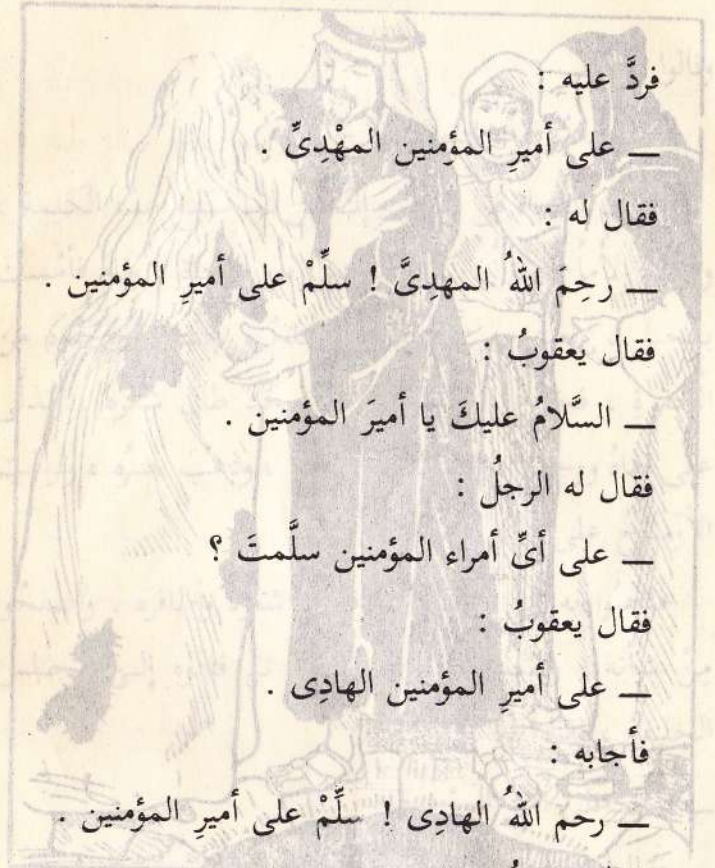 فردَّ عليه :
— على أميرِ المؤمنين المهْدِىِّ .
فقال له :
— رحِمَ اللهُ المهدِىَّ ! سلِّمْ على أميرِ المؤمنين .
فقال يعقوبُ :
— السَّلامُ عليكَ يا أميرَ المؤمنين .
فقال له الرجلُ :
— على أىِّ أمراء المؤمنين سلَّمتَ ؟
فقال يعقوبُ :
— على أميرِ المؤمنين الهادِى .
فأجابه :
— رحم اللهُ الهادِى ! سلِّمْ على أميرِ المؤمنين .